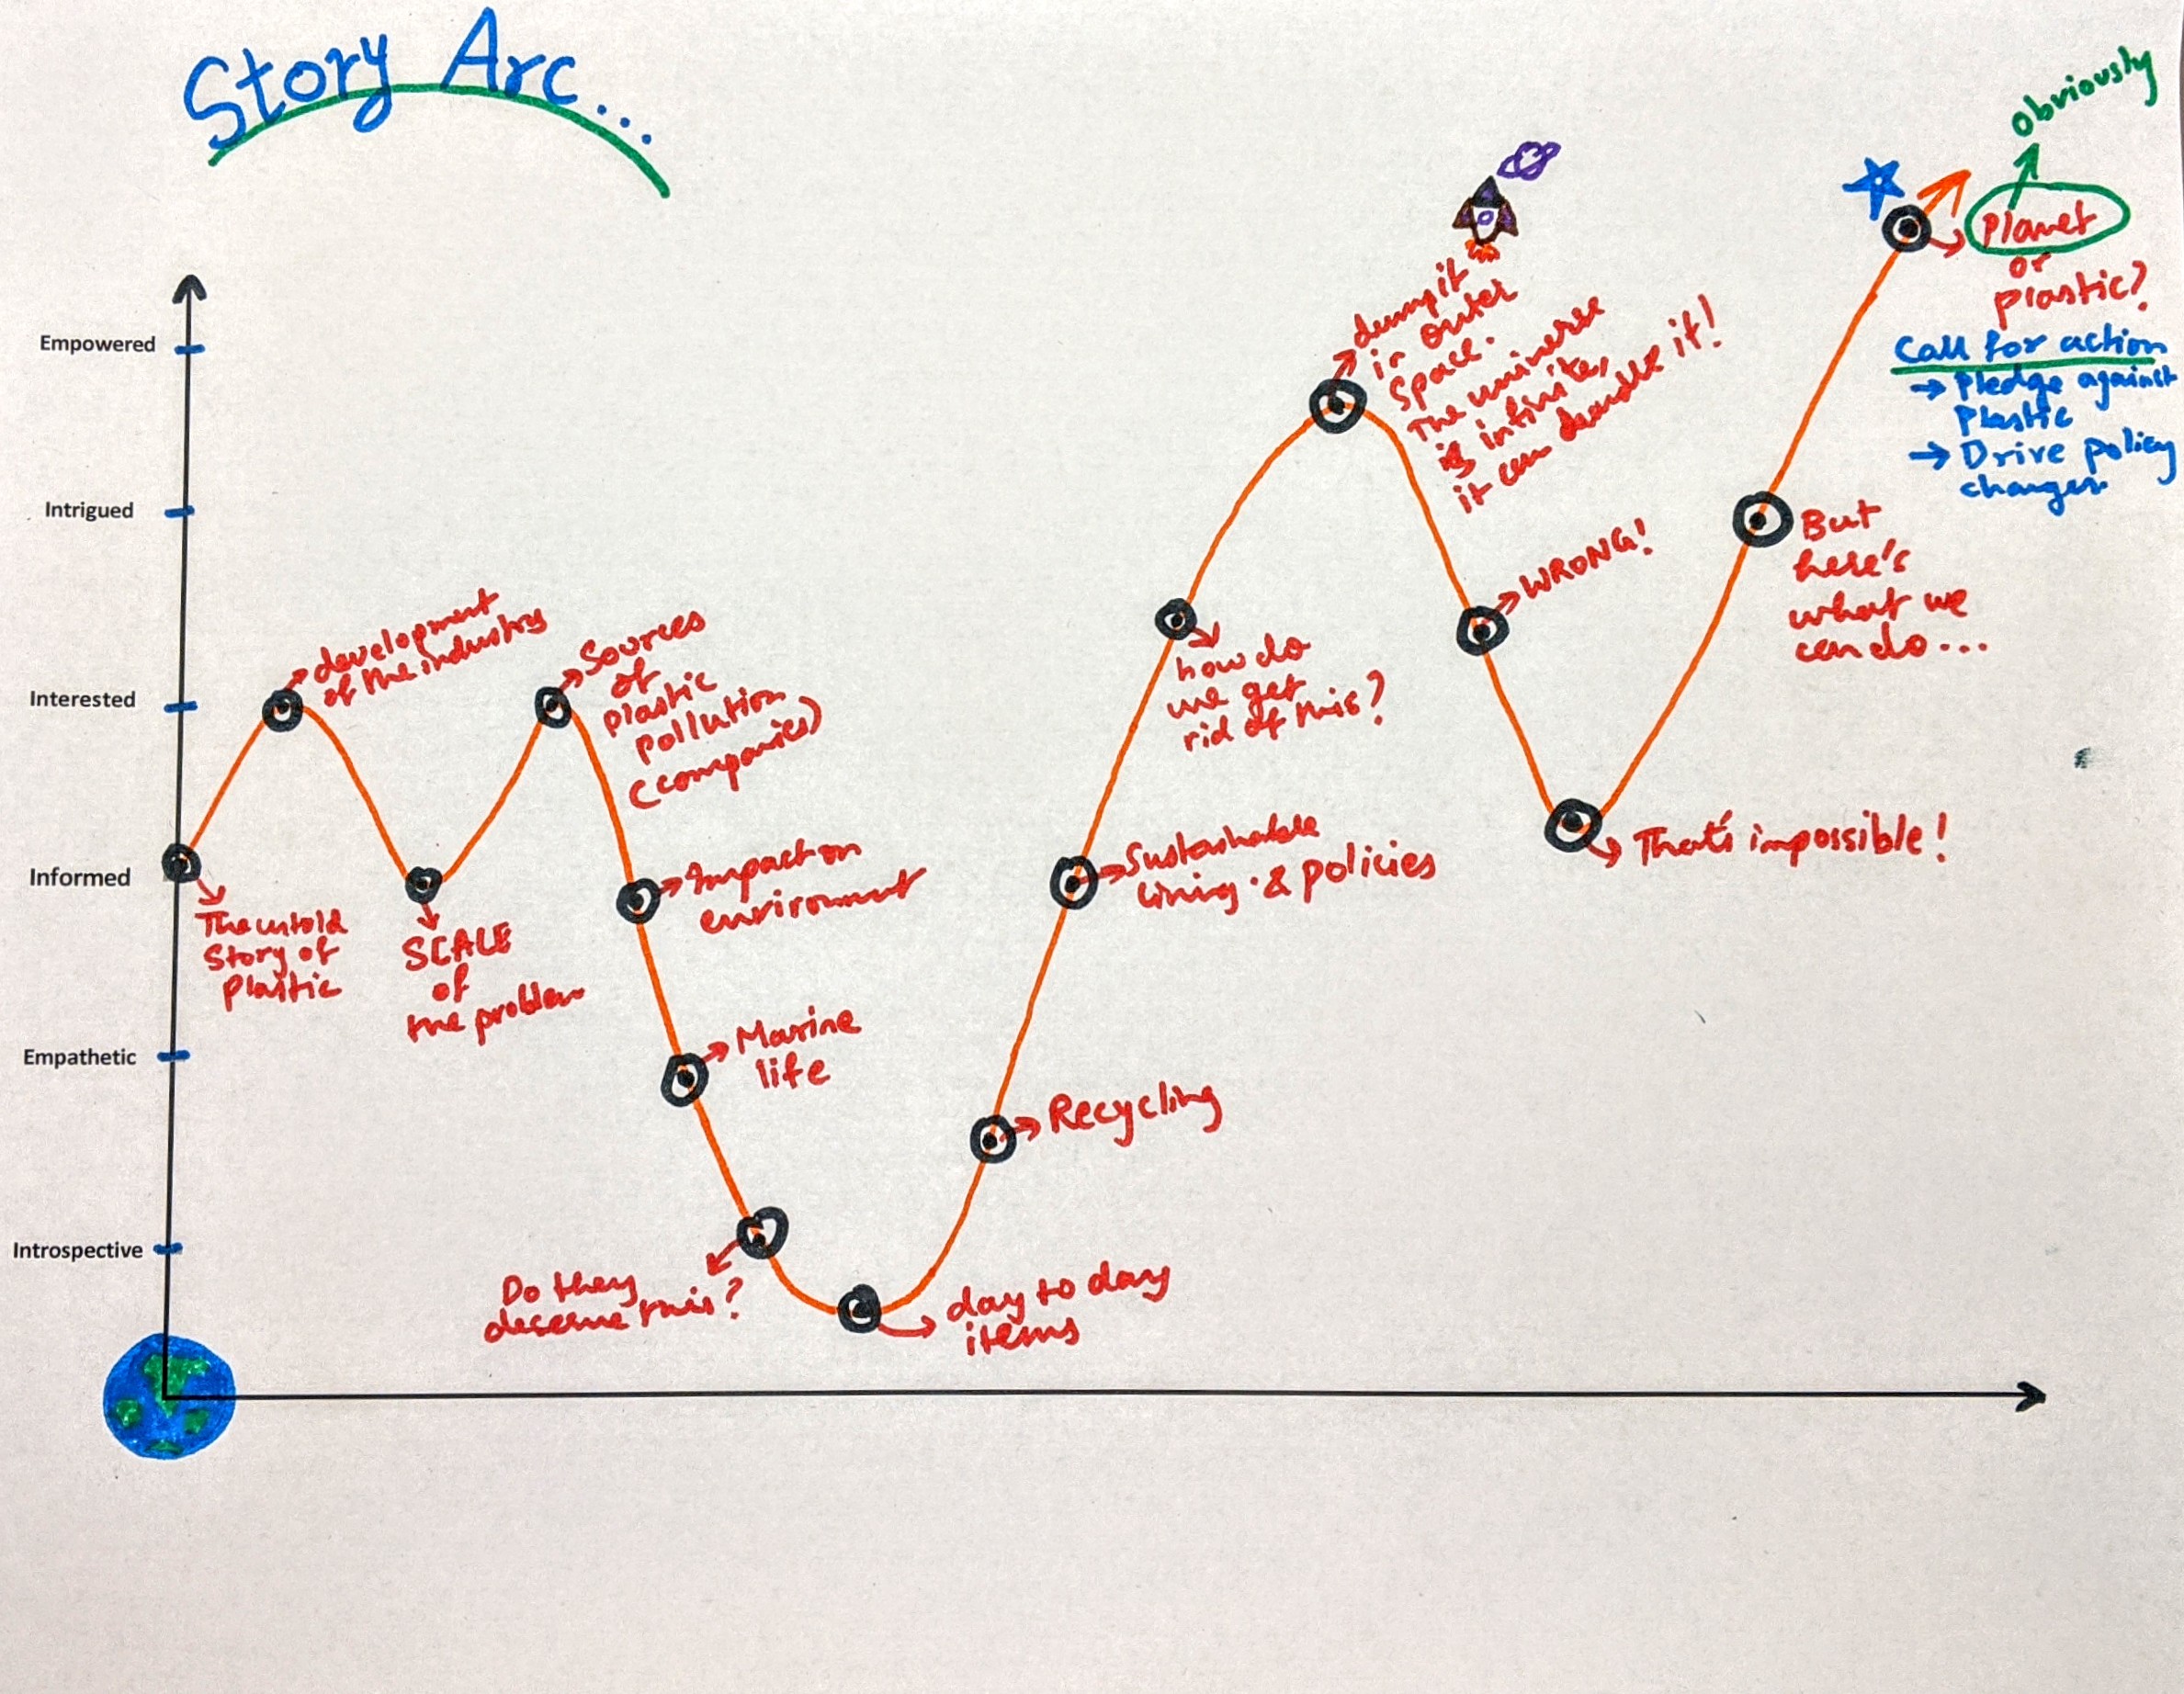 Story Arc...
Empowered
Intrigued
Interested
Informed
Empathetic
Introspective
The untold
Story of
Plastic
development
of the industry
SCALE
of
the problem
Sources
of
plastic
pollution
(companies)
Impact on
environment
Marine
life
Do they
deserve this?
day to day
items
Recycling
Sustainable
living & policies
how do
we get
rid of this?
dump it
in outer
space.
The universe
is infinite,
it can handle it!
WRONG!
That's impossible!
But
here's
what we
can do...
obviously
Planet
or
plastic?
Call for action
→ Pledge against
Plastic
→ Drive policy
changes